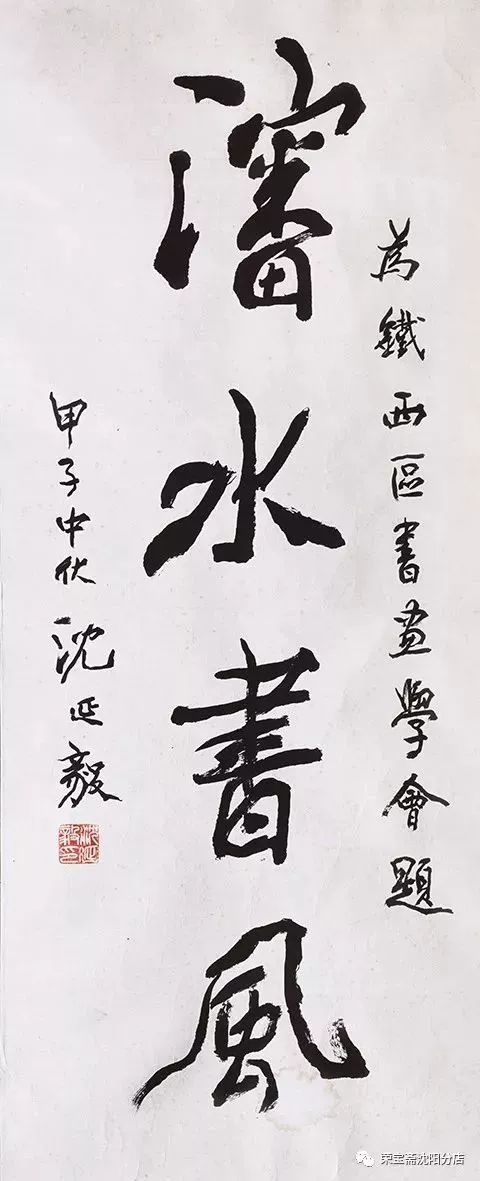 為鐵西區書畫學會題
瀋水書風
甲子中伏沈延毅
沈延毅印
荣宝斋沈阳分店